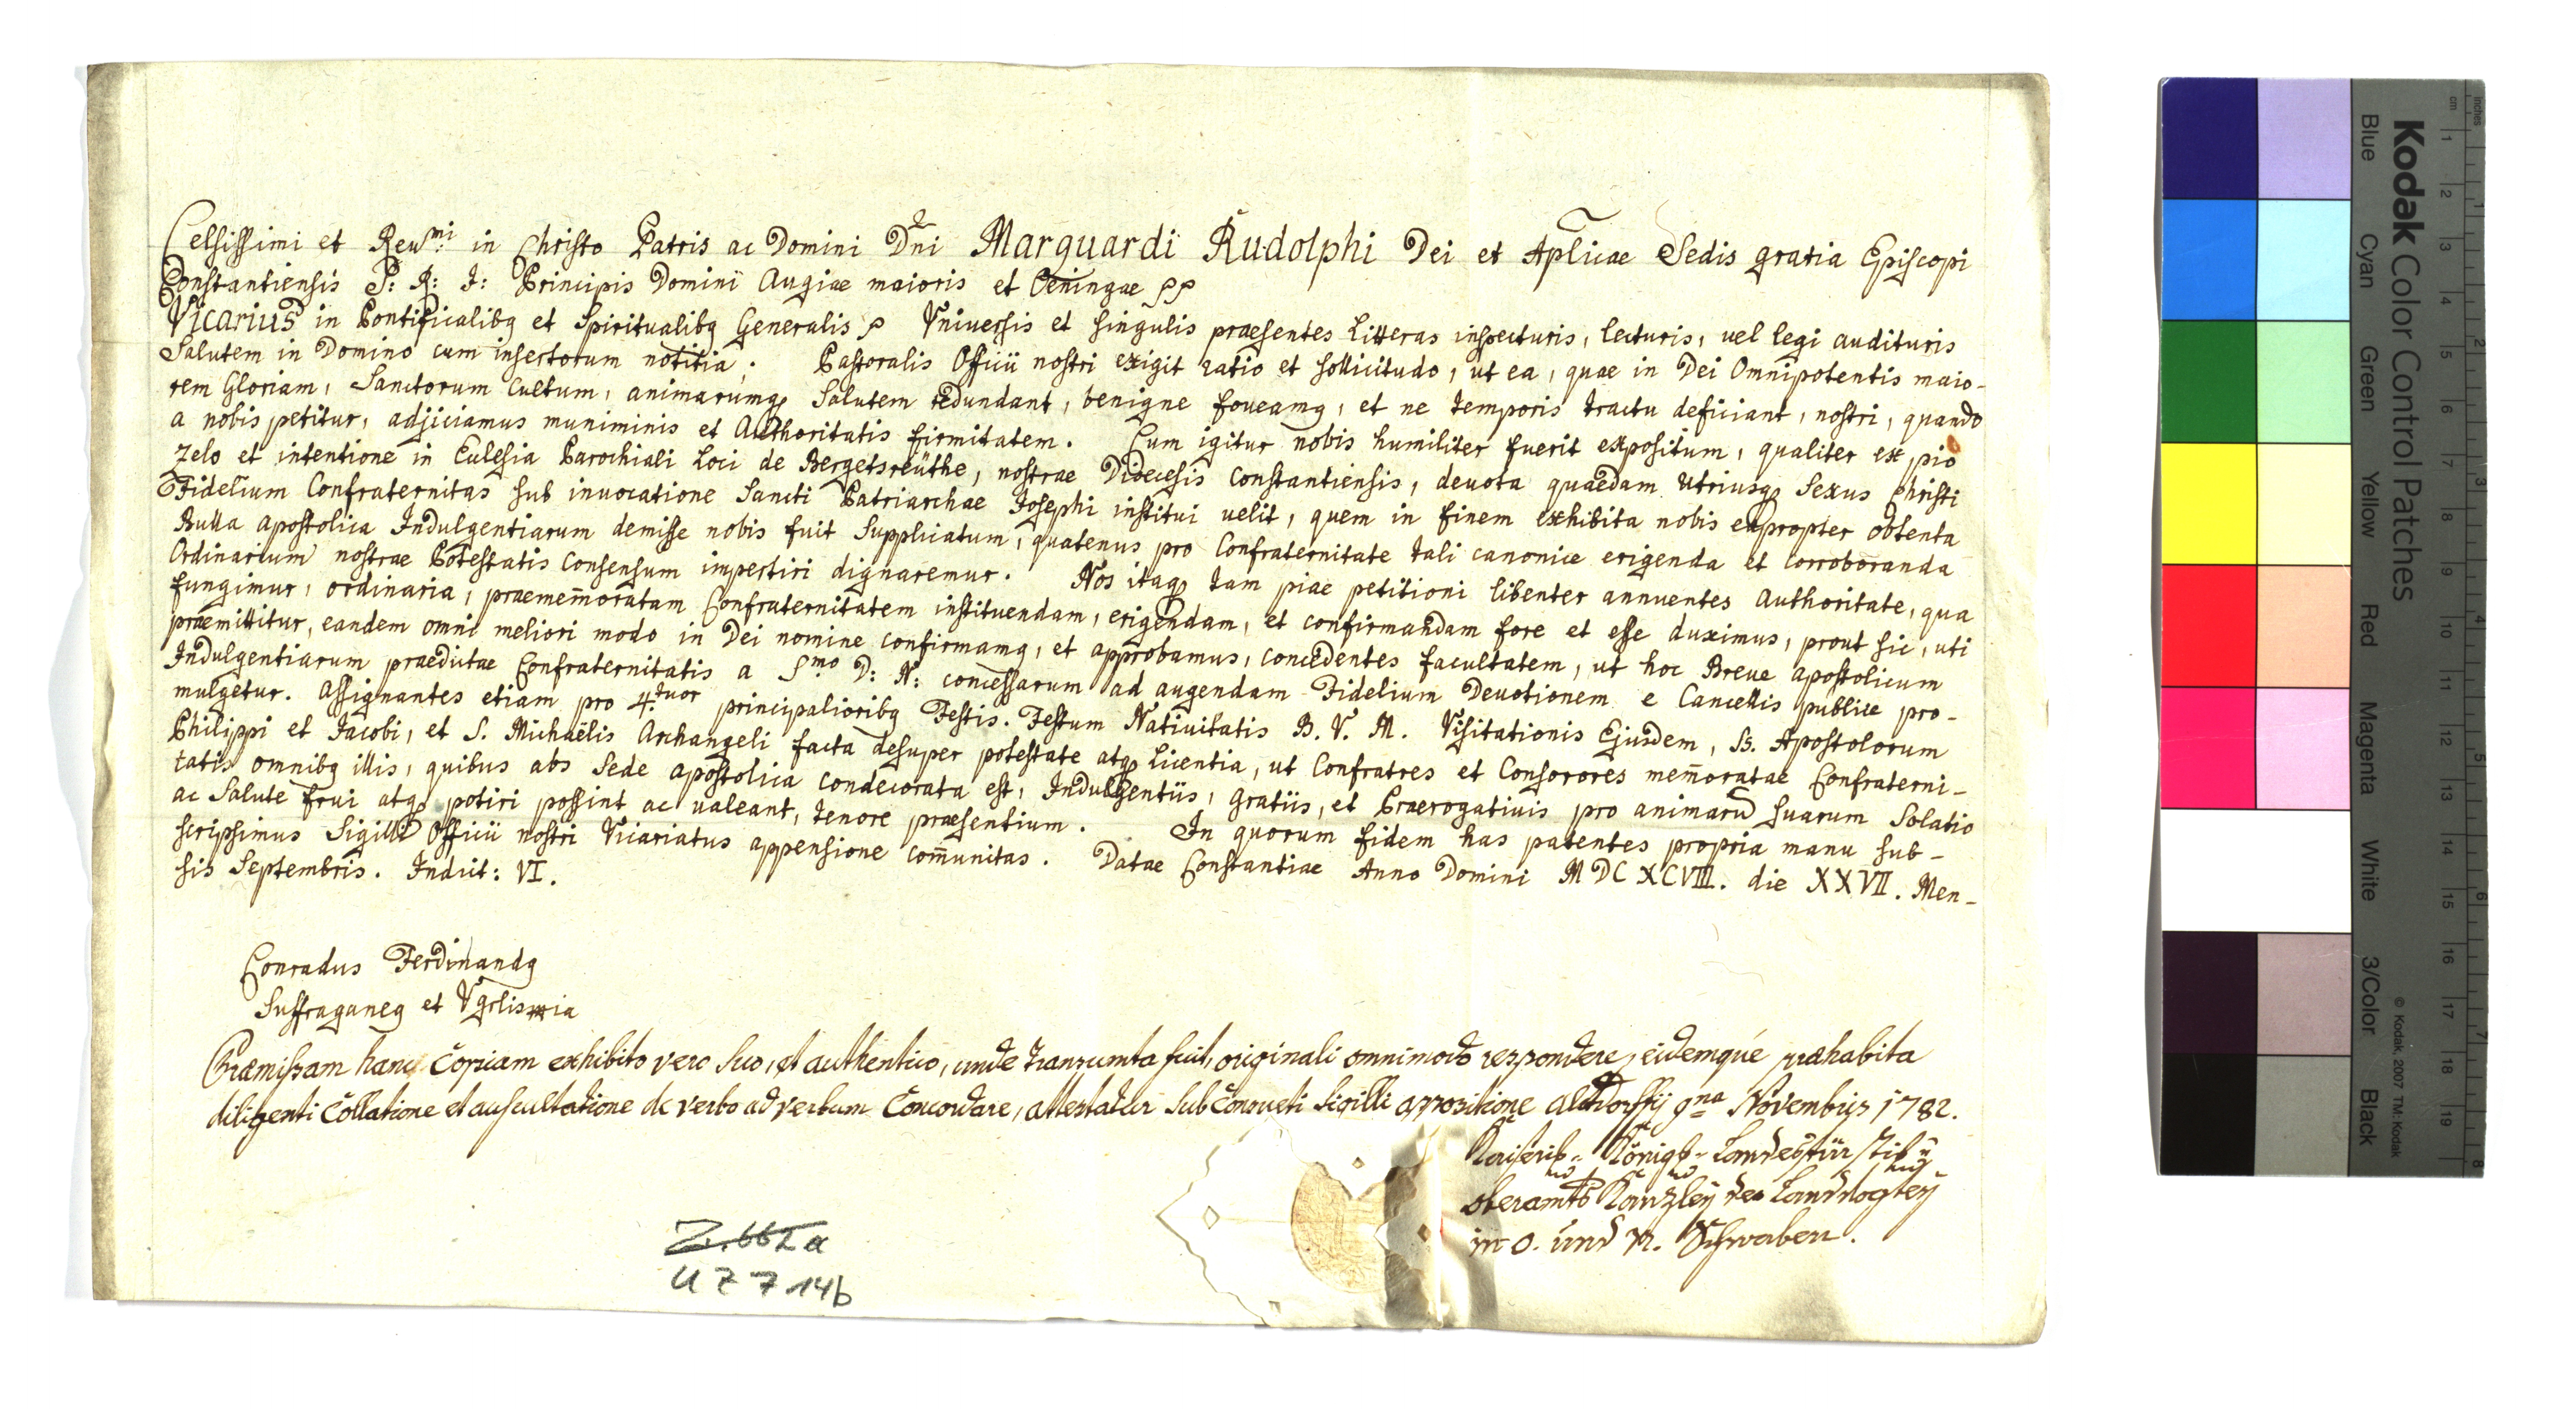 Celsissimi et Reu^mi: in Christo Patris ac Domini Dn̄i Marquardi Rudolphi Dei et Aplicae Sedis gratia Episcopi
Constantiensis S: R: I: Principis Domini Augiae maioris et Oeningae pp
Vicarius in Pontificalibq et Spiritualibq Generalis p Vniuersis et singulis praesentes Litteras inspecturis, lecturis, uel legi audituris
Salutem in Domino cum insertorum notitia. Pastoralis Officii nostri exigit ratio et sollicitudo, ut ea, quae in Dei Omnipotentis maio-
rem Gloriam, Sanctorum Cultum, animarumq Salutem redundant, benigne foueamq, et ne temporis tractu deficiant, nostri, quando
a nobis petitur, adjiciamus muniminis et Authoritatis firmitatem. Cum igitur nobis humiliter fuerit expositum, qualiter ex pio
Zelo et intentione in Eclesia Parochiali Loci de Bergetsreüthe, nostrae Dioecesis Constantiensis, deuota quaedam Utriusq Sexus Christi
Fidelium Confraternitas sub inuocatione Sancti Patriarchae Josephi institui uelit, quem in finem exhibita nobis eapropter obtenta
Bulla apostolica Indulgentiarum demisse nobis fuit Supplicatum, quatenus pro Confraternitate tali canonice erigenda et corroboranda
Ordinarium nostrae Potestatis Consensum impertiri dignaremur. Nos itaq tam piae petitioni libenter annuentes Authoritate, qua
fungimur, ordinaria, praemem̄oratam Confraternitatem instituendam, erigendam, et confirmandam fore et esse duximus, prout sic, uti
praemittitur, eandem omni meliori modo in Dei nomine confirmamq, et approbamus, concedentes facultatem, ut hoc Breue apostolicum
Indulgentiarum praedictae Confraternitatis a S^mo D: N: concessarum ad augendam Fidelium Deuotionem e Cancellis publice pro-
mulgetur. Assignantes etiam pro 4.^tuor principalioribq Festis. Festum Natiuitatis B. V. M. Visitationis Ejusdem, SS. Apostolorum
Philippi et Jacobi, et S. Michaëlis Archangeli facta desuper potestate atq Licentia, ut Confratres et Consorores mem̄oratae Confraterni-
tatis omnibq illis, quibus abs Sede apostolica condecorata est, Indulgentiis, Gratiis, et Praerogatiuis pro animarū suarum Solatio
ac Salute frui atq potiri possint ac ualeant, tenore praesentium. In quorum fidem has patentes propria manu sub-
scripsimus Sigilli Officii nostri Vicariatus appensione com̄unitas. Datae Constantiae Anno Domini MDCXCVIII. die XXVII. Men-
sis Septembris. Indict: VI.
Conradus Ferdinandq
Suffraganeq et Vgrlis
Præmissam hanc Copiam exhibito vero suo, et authentico, unde transumta fuit, originali omnimodo respondere, eidemque præhabita
diligenti Collatione et auscultatione de verbo ad verbum Concordare, attestatur sub Consueti Sigilli appositione Altdorffÿ 9^na Novembris 1782.
Kaiserl: Königl: Landesfürstl:
oberamts Kanzleÿ der Landvogteÿ
in O. und N. Schwaben.
Z. 662a
U Z 7 14b
Kodak Color Control Patches
Blue Cyan Green Yellow Red Magenta White 3/Color Black
© Kodak, 2007 TM: Kodak
Inches 1 2 3 4 5 6 7 8
cm 1 2 3 4 5 6 7 8 9 10 11 12 13 14 15 16 17 18 19